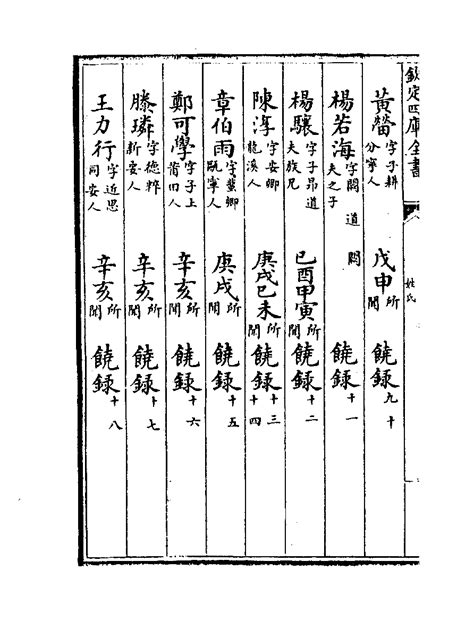 欽定四庫全書
姓氏
黃㽦字子耕分寧人 戊申所聞 饒録九十
楊若海字闕道夫之子 闕 饒録十一
楊驤字子昂道夫族兄 己酉甲寅所聞 饒録十二
陳淳字安卿龍溪人 庚戌己未所聞 饒録十三十四
章伯雨字蜚卿甌寧人 庚戌所聞 饒録十五
鄭可學字子上莆田人 辛亥所聞 饒録十六
滕璘字德粹新安人 辛亥所聞 饒録十七
王力行字近思同安人 辛亥所聞 饒録十八